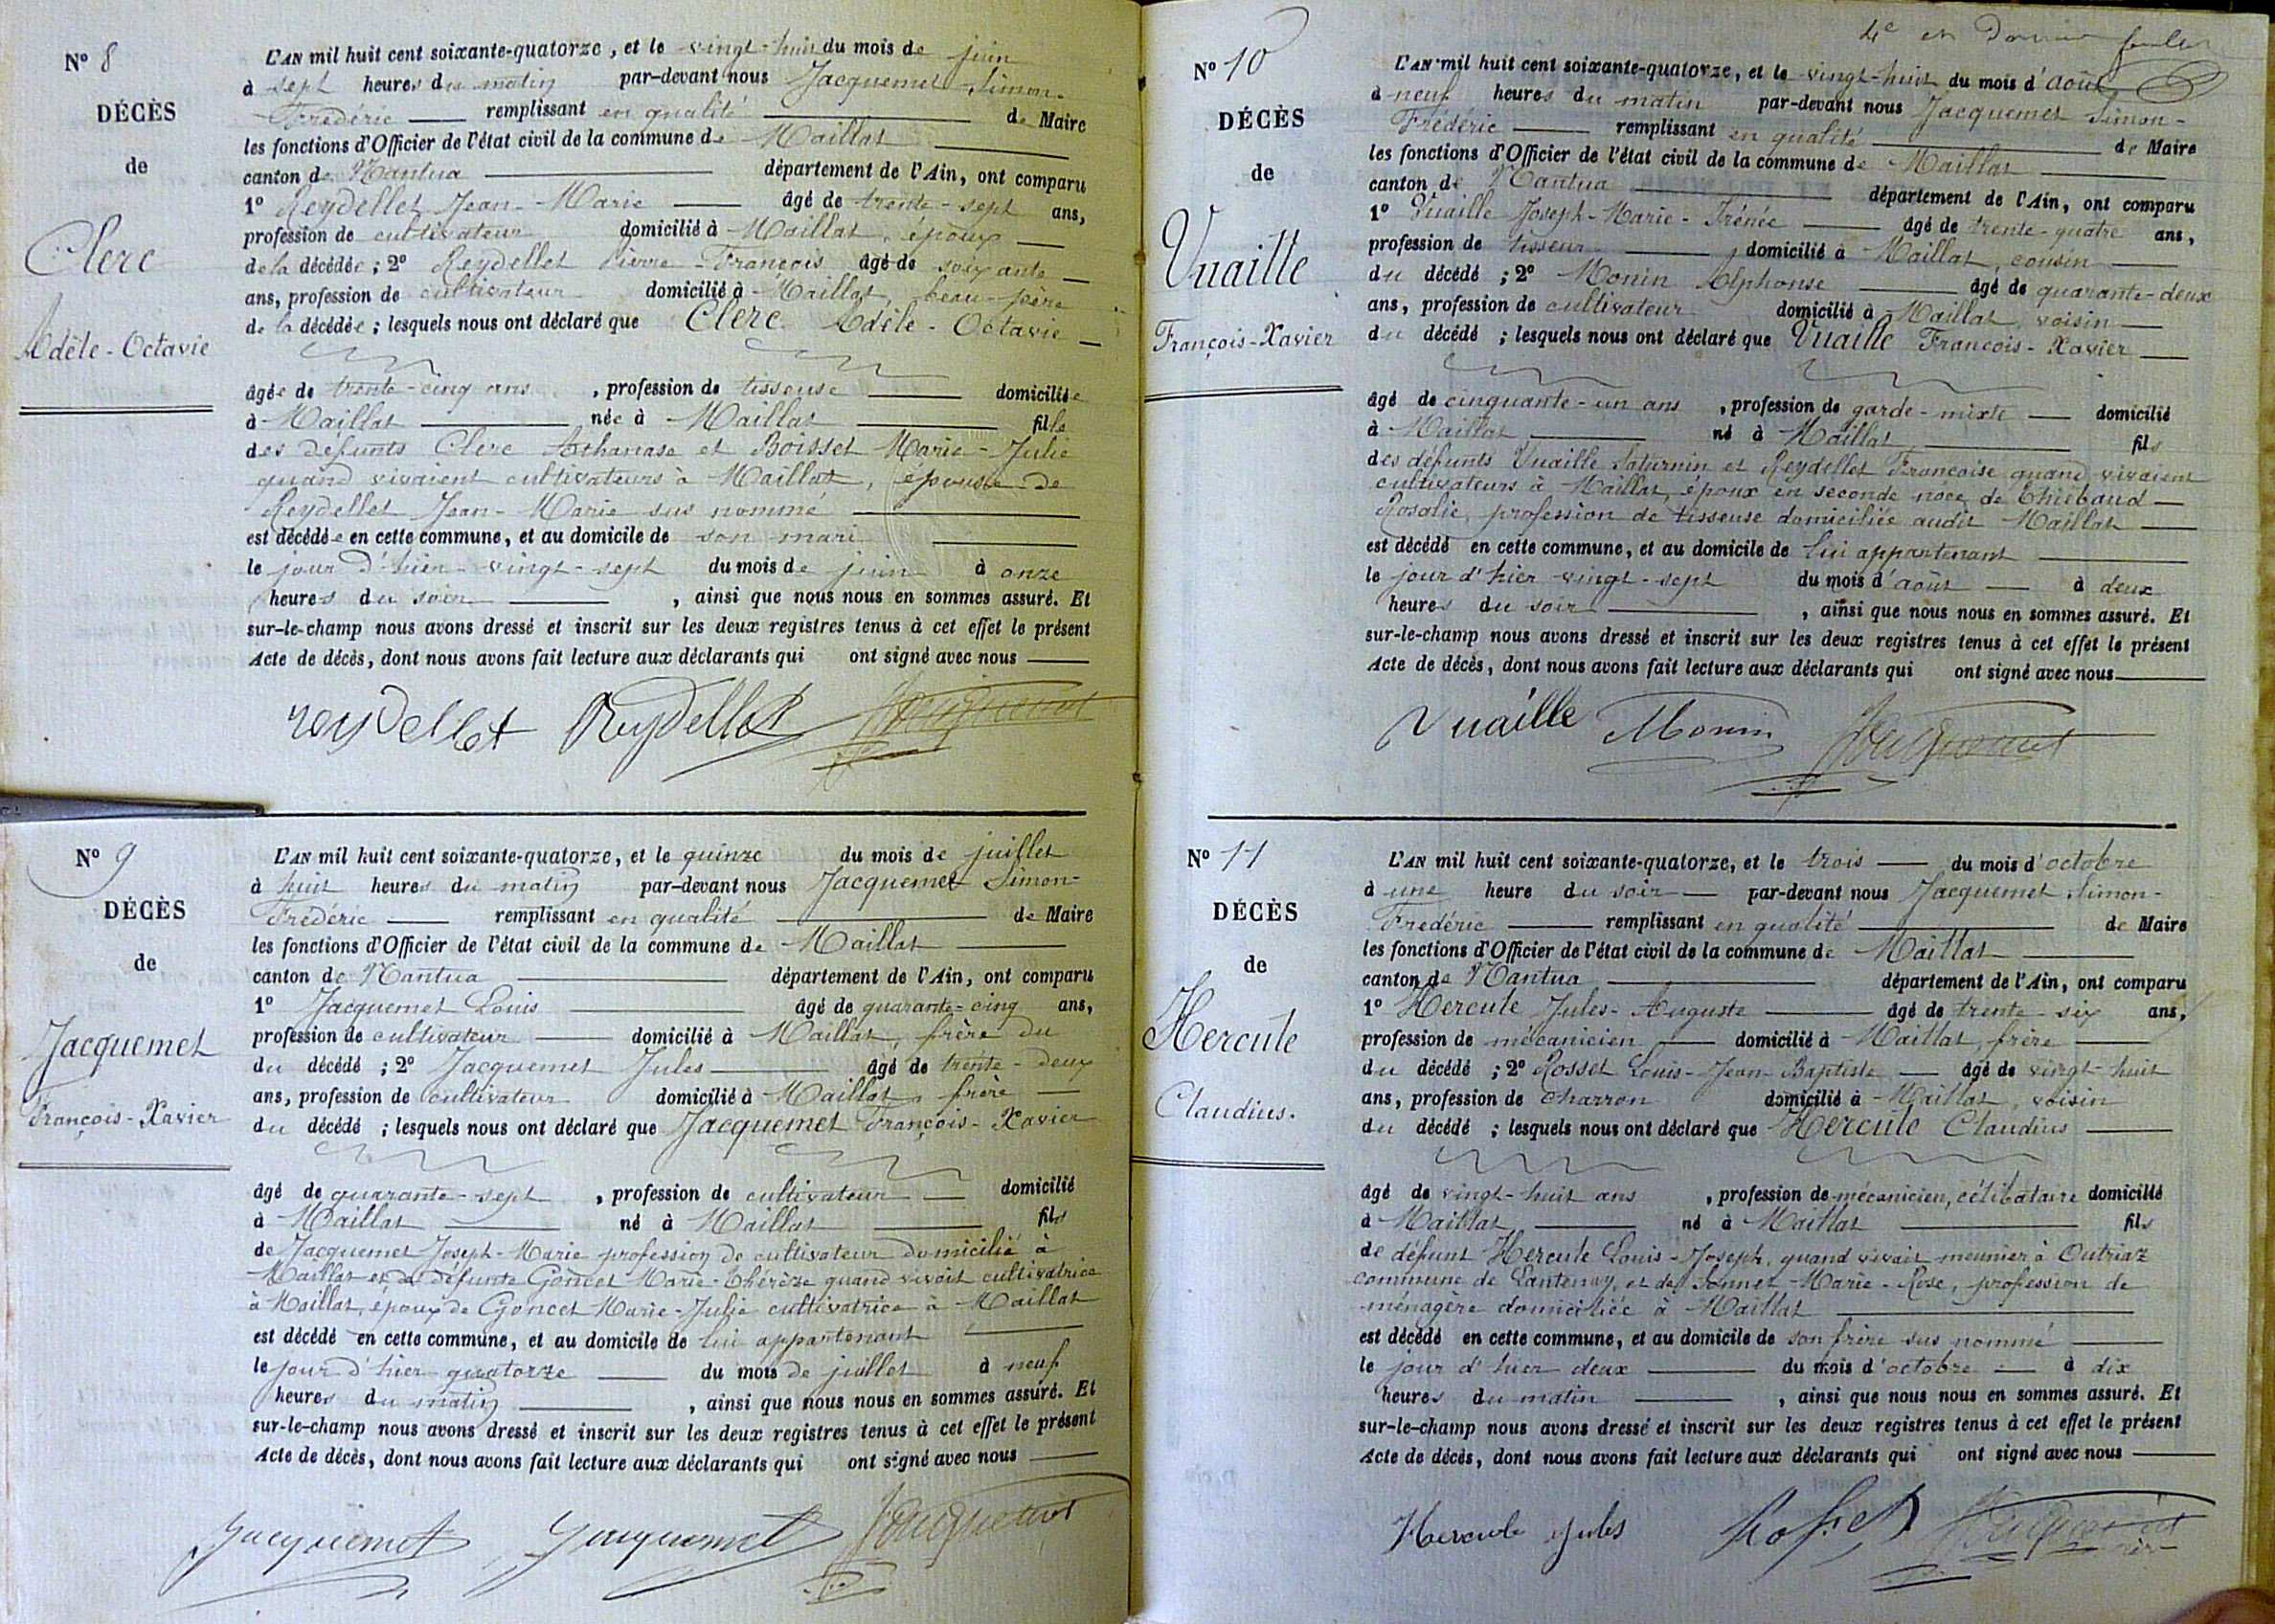 N° 8
DÉCÈS
de
Clerc
Adèle-Octavie
L'AN mil huit cent soixante-quatorze, et le vingt-huit du mois de juin
à sept heures du matin par-devant nous Jacquemet Simon-
Frédéric remplissant en qualité de Maire
les fonctions d'Officier de l'état civil de la commune de Maillat
canton de Nantua département de l'Ain, ont comparu
1° Reydellet Jean-Marie âgé de trente-sept ans,
profession de cultivateur domicilié à Maillat, époux
de la décédée ; 2° Reydellet Pierre-François âgé de soixante
ans, profession de cultivateur domicilié à Maillat, beau-père
de la décédée ; lesquels nous ont déclaré que Clerc Adèle-Octavie
âgée de trente-cinq ans, profession de tisseuse domiciliée
à Maillat née à Maillat fille
des défunts Clerc Athanase et Boisset Marie-Julie
quand vivaient cultivateurs à Maillat, épouse de
Reydellet Jean-Marie sus nommé
est décédée en cette commune, et au domicile de son mari
le jour d'hier vingt-sept du mois de juin à onze
heures du soir, ainsi que nous nous en sommes assuré. Et
sur-le-champ nous avons dressé et inscrit sur les deux registres tenus à cet effet le présent
Acte de décès, dont nous avons fait lecture aux déclarants qui ont signé avec nous
reydellet Reydellet Jacquemet
N° 9
DÉCÈS
de
Jacquemet
François-Xavier
L'AN mil huit cent soixante-quatorze, et le quinze du mois de juillet
à huit heures du matin par-devant nous Jacquemet Simon-
Frédéric remplissant en qualité de Maire
les fonctions d'Officier de l'état civil de la commune de Maillat
canton de Nantua département de l'Ain, ont comparu
1° Jacquemet Louis âgé de quarante-cinq ans,
profession de cultivateur domicilié à Maillat, frère du
du décédé ; 2° Jacquemet Jules âgé de trente-deux
ans, profession de cultivateur domicilié à Maillat, frère
du décédé ; lesquels nous ont déclaré que Jacquemet François-Xavier
âgé de quarante-sept, profession de cultivateur domicilié
à Maillat né à Maillat fils
de Jacquemet Joseph-Marie profession de cultivateur domicilié à
Maillat et de défunte Goncet Marie-Thérèze quand vivait cultivatrice
à Maillat, époux de Goncet Marie-Julie cultivatrice à Maillat
est décédé en cette commune, et au domicile de lui appartenant
le jour d'hier quatorze du mois de juillet à neuf
heures du matin, ainsi que nous nous en sommes assuré. Et
sur-le-champ nous avons dressé et inscrit sur les deux registres tenus à cet effet le présent
Acte de décès, dont nous avons fait lecture aux déclarants qui ont signé avec nous
Jacquemet Jacquemet Jacquemet
4e et Dernier
N° 10
DÉCÈS
de
Vuaille
François-Xavier
L'AN mil huit cent soixante-quatorze, et le vingt-huit du mois d'août
à neuf heures du matin par-devant nous Jacquemet Simon-
Frédéric remplissant en qualité de Maire
les fonctions d'Officier de l'état civil de la commune de Maillat
canton de Nantua département de l'Ain, ont comparu
1° Vuaille Joseph-Marie-Irénée âgé de trente-quatre ans,
profession de tisseur domicilié à Maillat, cousin
du décédé ; 2° Monin Alphonse âgé de quarante-deux
ans, profession de cultivateur domicilié à Maillat, voisin
du décédé ; lesquels nous ont déclaré que Vuaille François-Xavier
âgé de cinquante-un ans, profession de garde-mixte domicilié
à Maillat né à Maillat fils
des défunts Vuaille Saturnin et Reydellet Françoise quand vivaient
cultivateurs à Maillat, époux en seconde noce de Thiébaud
Rosalie, profession de tisseuse domiciliée audit Maillat
est décédé en cette commune, et au domicile de lui appartenant
le jour d'hier vingt-sept du mois d'août à deux
heures du soir, ainsi que nous nous en sommes assuré. Et
sur-le-champ nous avons dressé et inscrit sur les deux registres tenus à cet effet le présent
Acte de décès, dont nous avons fait lecture aux déclarants qui ont signé avec nous
Vuaille Monin Jacquemet
N° 11
DÉCÈS
de
Hercule
Claudius.
L'AN mil huit cent soixante-quatorze, et le trois du mois d'octobre
à une heure du soir par-devant nous Jacquemet Simon-
Frédéric remplissant en qualité de Maire
les fonctions d'Officier de l'état civil de la commune de Maillat
canton de Nantua département de l'Ain, ont comparu
1° Hercule Jules-Auguste âgé de trente-six ans,
profession de mécanicien domicilié à Maillat, frère
du décédé ; 2° Rosset Louis-Jean-Baptiste âgé de vingt-huit
ans, profession de charron domicilié à Maillat, voisin
du décédé ; lesquels nous ont déclaré que Hercule Claudius
âgé de vingt-huit ans, profession de mécanicien, célibataire domicilié
à Maillat né à Maillat fils
de défunt Hercule Louis-Joseph, quand vivait meunier à Outriaz
commune de Lantenay, et de Marie-Rose, profession de
ménagère domiciliée à Maillat
est décédé en cette commune, et au domicile de son frère sus nommé
le jour d'hier deux du mois d'octobre à dix
heures du matin, ainsi que nous nous en sommes assuré. Et
sur-le-champ nous avons dressé et inscrit sur les deux registres tenus à cet effet le présent
Acte de décès, dont nous avons fait lecture aux déclarants qui ont signé avec nous
Hercule Jules Rosset Jacquemet